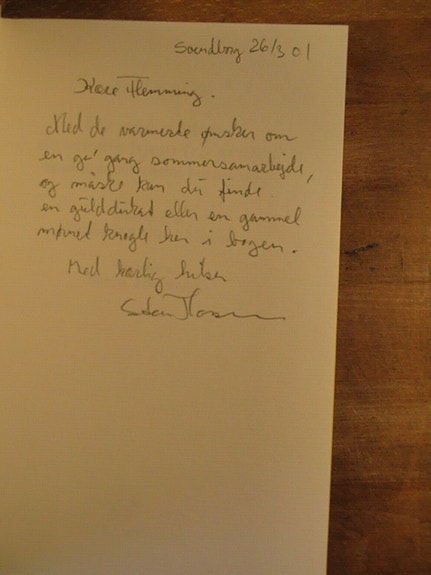 Svendborg 26/3 01
Kære Flemming.
Med de varmeste ønsker om
en go' gang sommersamarbejde,
og måske kan du finde
en gulddukat eller en gammel
mønet knogle her i bogen.
Med kærlig hilsen